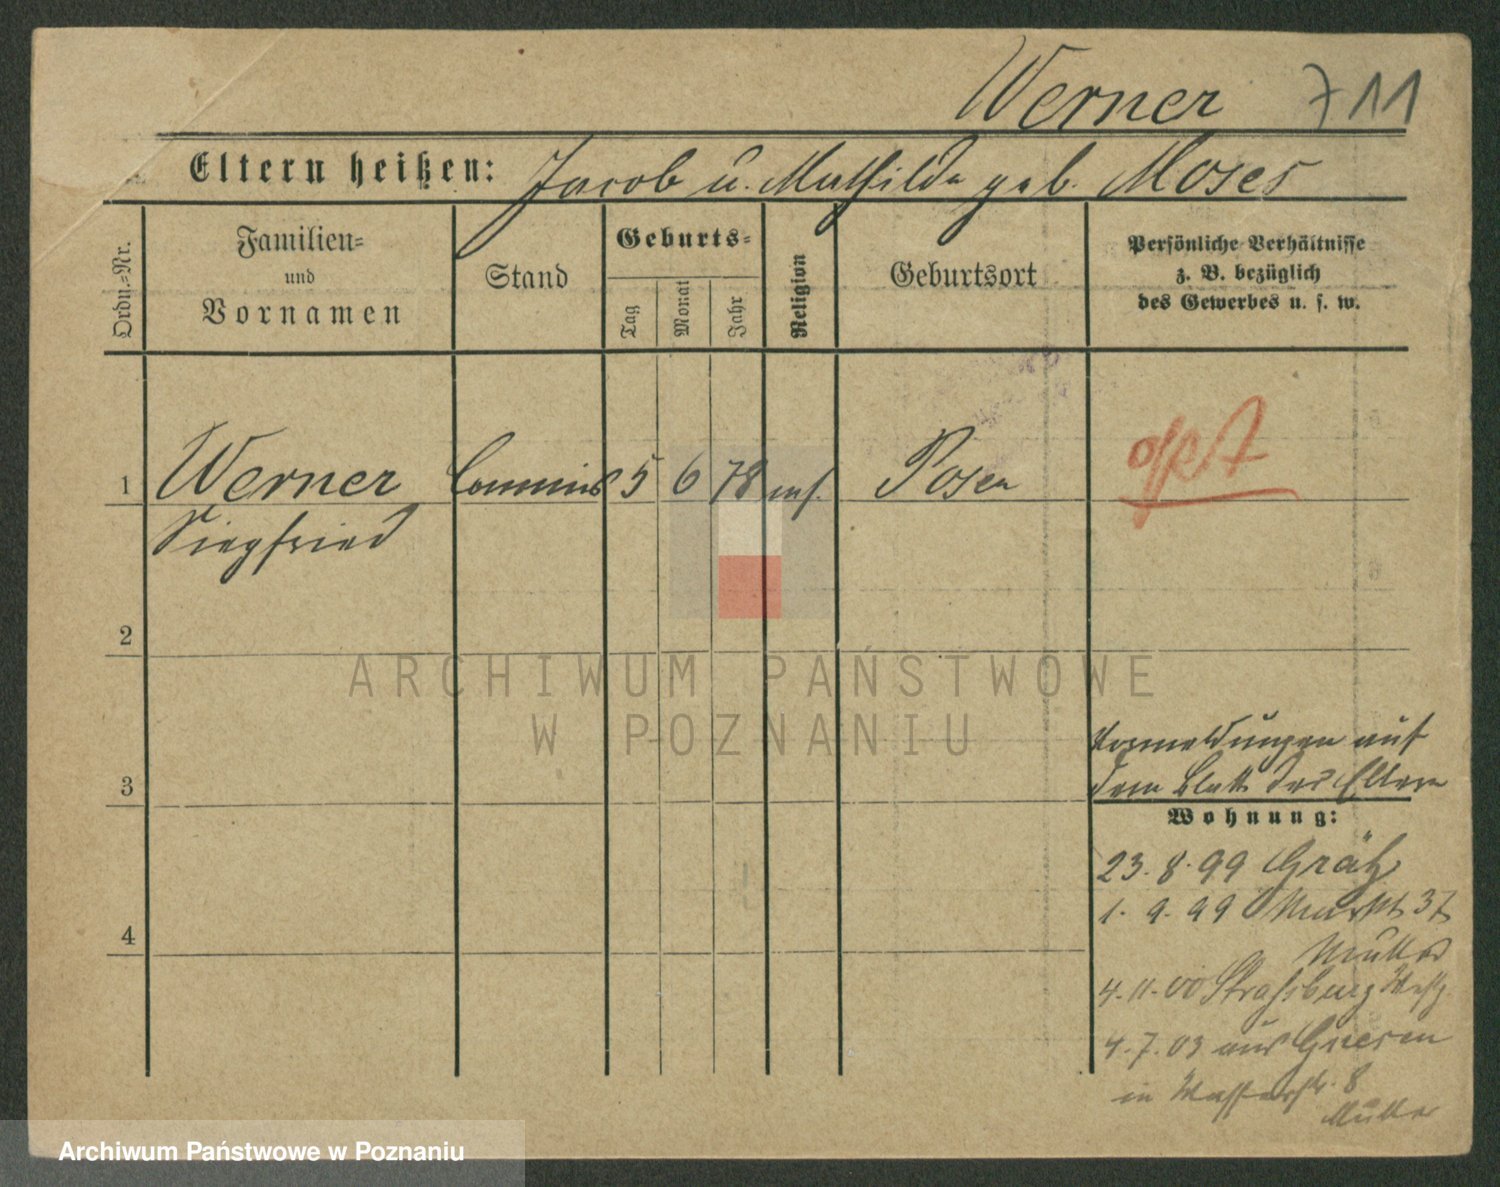 Werner 711
Eltern heißen: Jacob u. Mathilde geb. Moses
Ordn.-Nr.
Familien-
und
Vornamen
Stand
Geburts-
Tag
Monat
Jahr
Religion
Geburtsort
Persönliche Verhältnisse
z. B. bezüglich
des Gewerbes u. s. w.
1 Werner Commis 5 6 78 mos. Posen
Siegfried
2
3
4
Vormeldungen auf
dem Blatt der Eltern
Wohnung:
23. 8. 99 Grätz
1. 9. 99 Markt 37
Mutter
4. 11. 00 Strassburg Westp.
4. 7. 03 aus Gnesen
in Wasserstr. 8
Mutter
ARCHIWUM PAŃSTWOWE
W POZNANIU
Archiwum Państwowe w Poznaniu